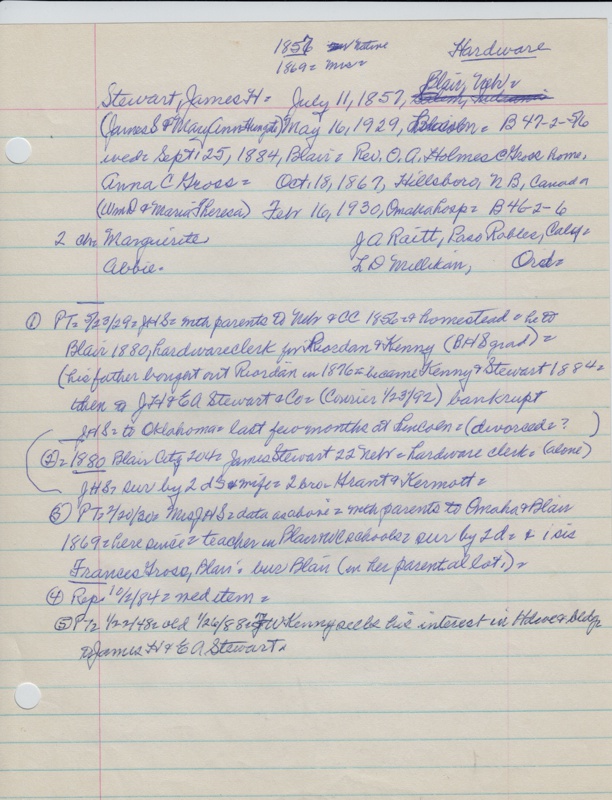 1857 = Native Hardware
1869 = Mrs =
Blair, Nebr =
Stewart, James H = July 11, 1857,
(James S & Mary Ann Hungate) May 16, 1929, Lincoln = B 47-2-5/6
wed = Sept 25, 1884, Blair = Rev. O. A. Holmes @ Gross home,
Anna C Gross = Oct. 18, 1867, Hillsboro, N B, Canada
(Wm D & Maria Theresa) Febr 16, 1930, Omaha hosp = B 46-2-6
2 ch = Marguerite J A Raitt, Paso Robles, Calif =
Abbie = L D Millikan, Ord =
① PT = 5/23/29 = JHS = with parents to Nebr & CC 1856 = & homestead = he to
Blair 1880, hardware clerk for Riordan & Kenny (BHS grad) =
(his father bought out Riordan in 1876 = became Kenny & Stewart 1884 =
then to J H & E A Stewart & Co = (Courier 1/23/92) bankrupt
JHS = to Oklahoma = last few months at Lincoln = (divorced = ?)
(② = 1880 Blair City 204 = James Stewart 22 Nebr = hardware clerk = (alone)
JHS, sur by 2 ds & wife = 2 bro = Grant & Kermott =
③ PT = 2/20/30 = Mrs JHS = data as above = with parents to Omaha & Blair
1869 = here since = teacher in Blair schools = sur by 2 d = & 1 sis
Frances Gross, Blair = bur Blair (in her parental lot.) =
④ Rep = 10/2/84 = wed item =
⑤ PT = 1/22/48 = old 1/26/88 = J W Kenny sells his interest in Hdwe & bldg
to James H & E A Stewart =